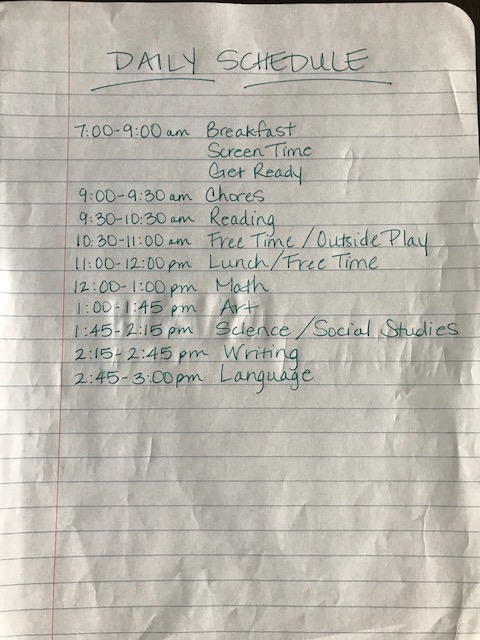 DAILY SCHEDULE
7:00-9:00 am Breakfast
Screen Time
Get Ready
9:00-9:30 am Chores
9:30-10:30 am Reading
10:30-11:00 am Free Time / Outside Play
11:00-12:00 pm Lunch/Free Time
12:00-1:00 pm Math
1:00-1:45 pm Art
1:45-2:15 pm Science / Social Studies
2:15-2:45 pm Writing
2:45-3:00 pm Language